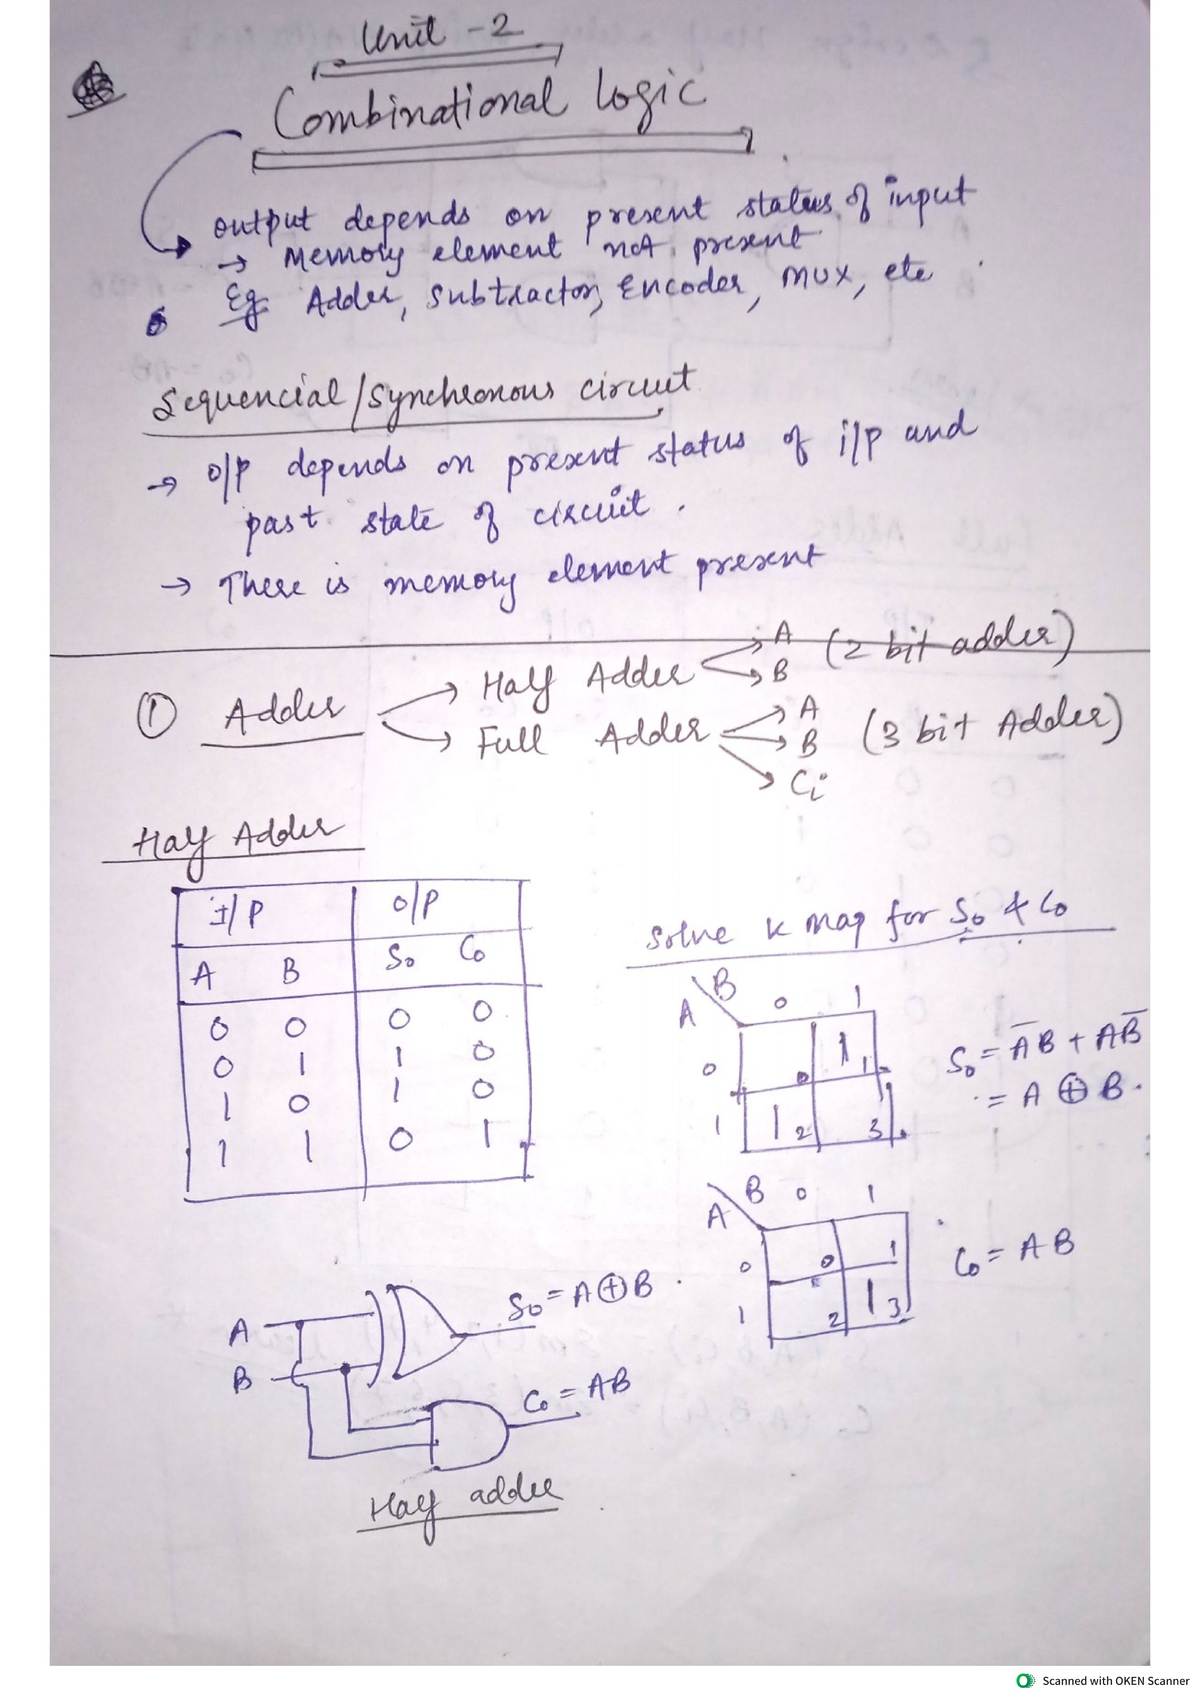 Unit - 2
Combinational Logic
output depends on present status of input
→ Memory element not present
Eg. Adder, Subtractor, Encoder, MUX, etc
Sequencial/Synchronous circuit
→ O/P depends on present status of i/p and
past state of circuit.
→ There is memory element present
① Adder
Half Adder A B (2 bit adder)
Full Adder A B Ci (3 bit Adder)
Half Adder
I/P O/P
A B So Co
0 0 0 0
0 1 1 0
1 0 1 0
1 1 0 1
Solve K map for So & Co
A B 0 1
0 0 1 1
1 1 2 3
So = A̅B + AB̅
= A ⊕ B.
A B 0 1
0 0 1
1 2 1 3
Co = AB
A
B
So = A⊕B
Co = AB
Half adder
Scanned with OKEN Scanner